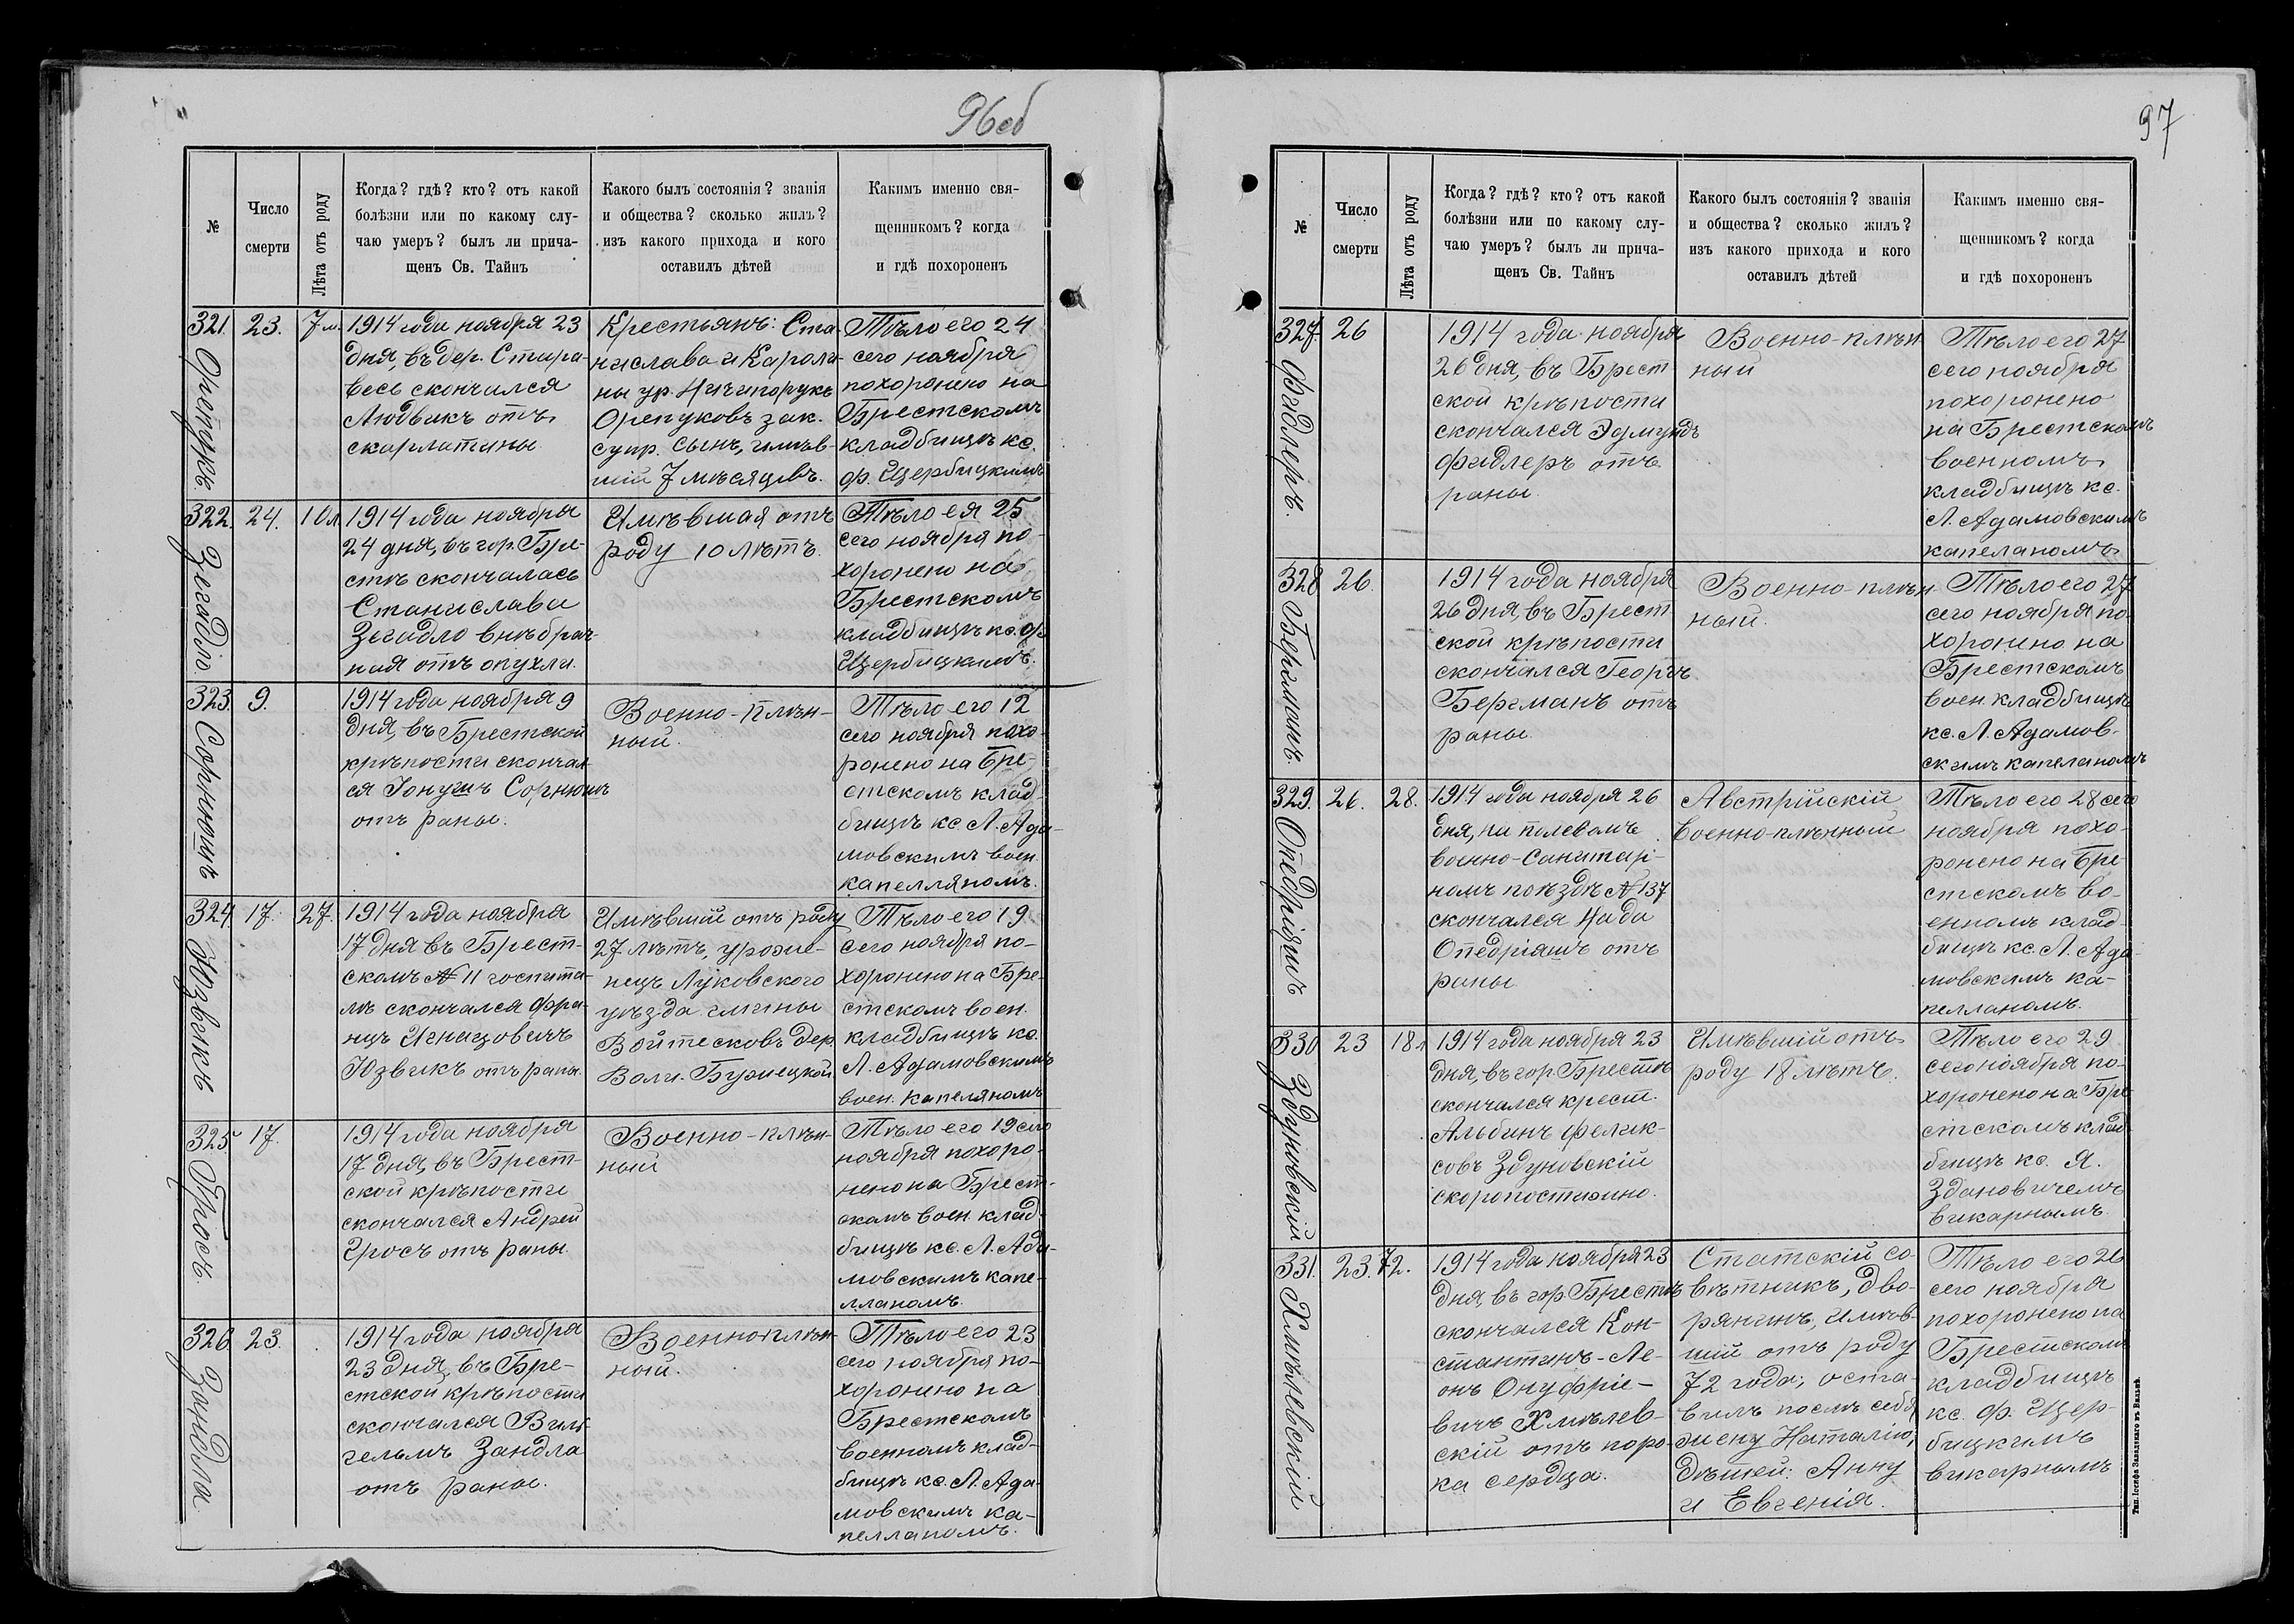 96об
№
Число
смерти
Лѣта отъ роду
Когда? гдѣ? кто? отъ какой
болѣзни или по какому слу-
чаю умеръ? былъ ли прича-
щенъ Св. Тайнъ
Какого былъ состоянія? званія
и общества? сколько жилъ?
изъ какого прихода и кого
оставилъ дѣтей
Какимъ именно свя-
щенникомъ? когда
и гдѣ похороненъ
321.
Орепукъ
23.
7 м.
1914 года ноября 23
дня, въ дер. Стара-
весь скончался
Людвикъ отъ
скарлатины
Крестьянъ: Ста-
нислава и Кароли-
ны ур. Ничипорукъ
Орепуковъ зак.
супр. сынъ, имѣв-
шій 7 мѣсяцевъ.
Тѣло его 24
сего ноября
похоронено на
Брестскомъ
кладбищѣ кс.
Ф. Щербицкимъ
322.
Зегадло.
24.
10 л
1914 года ноября
24 дня, въ гор. Бре-
стѣ скончалась
Станислава
Зегадло внѣбрач-
ная отъ опухли.
Имѣвшая отъ
роду 10 лѣтъ.
Тѣло ея 25
сего ноября по-
хоронено на
Брестскомъ
кладбищѣ кс. Ф.
Щербицкимъ.
323.
Сорнюшъ
9.
1914 года ноября 9
дня, въ Брестской
крѣпости скончал-
ся Іонушъ Сорнюшъ
отъ раны.
Военно-плѣн-
ный.
Тѣло его 12
сего ноября похо-
ронено на Бре-
стскомъ клад-
бищѣ кс. Л. Ада-
мовскимъ воен.
капелляномъ.
324.
Юзвикъ
17.
27.
1914 года ноября
17 дня въ Брест-
скомъ № 11 госпита-
лѣ скончался Фра-
нцъ Игнацовичъ
Юзвикъ отъ раны.
Имѣвшій отъ роду
27 лѣтъ, уроже-
нецъ Луковскаго
уѣзда гмины
Войтесковъ дер.
Воли-Бурзецкой.
Тѣло его 19
сего ноября по-
хоронено на Бре-
стскомъ воен.
кладбищѣ кс.
Л. Адамовскимъ
воен. капеляномъ
325
Гросъ.
17.
1914 года ноября
17 дня, въ Брест-
ской крѣпости
скончался Андрей
Гросъ отъ раны.
Военно-плѣн-
ный
Тѣло его 19 сего
ноября похоро-
нено на Брест-
скомъ воен. клад-
бищѣ кс. Л. Ада-
мовскимъ капе-
лланомъ.
326.
Зандла.
23.
1914 года ноября
23 дня, въ Бре-
стской крѣпости
скончался Виль-
гельмъ Зандла
отъ раны.
Военно-плѣн-
ный.
Тѣло его 23
сего ноября по-
хоронено на
Брестскомъ
военномъ клад-
бищѣ кс. Л. Ада-
мовскимъ ка-
пелланомъ.
97
№
Число
смерти
Лѣта отъ роду
Когда? гдѣ? кто? отъ какой
болѣзни или по какому слу-
чаю умеръ? былъ ли прича-
щенъ Св. Тайнъ
Какого былъ состоянія? званія
и общества? сколько жилъ?
изъ какого прихода и кого
оставилъ дѣтей
Какимъ именно свя-
щенникомъ? когда
и гдѣ похороненъ
327.
Фидлеръ.
26
1914 года ноября
26 дня, въ Брест
ской крѣпости
скончался Эдмундъ
Фидлеръ отъ
раны.
Военно-плѣн
ный
Тѣло его 27
сего ноября
похоронено
на Брестскомъ
военномъ
кладбищѣ кс.
Л. Адамовскимъ
капеланомъ
328
Бергманъ.
26.
1914 года ноября
26 дня, въ Брест
ской крѣпости
скончался Георгъ
Бергманъ отъ
раны
Военно-плѣн-
ный.
Тѣло его 27
сего ноября по-
хоронено на
Брестскомъ
воен. кладбищѣ
кс. Л. Адамов-
скимъ капеланомъ
329.
Опедріяшъ
26.
28.
1914 года ноября 26
дня, на полевомъ
военно-санитар-
номъ поѣздѣ № 137
скончался Нада
Опедріяшъ отъ
раны
Австрійскій
военно-плѣнный
Тѣло его 28 сего
ноября похо-
ронено на Бре-
стскомъ во-
енномъ клад-
бищѣ кс. Л. Ада-
мовскимъ ка-
пелланомъ.
330
Здуновскій
23
18 л
1914 года ноября 23
дня, въ гор. Брестѣ
скончался крест.
Альбинъ Феликс-
совъ Здуновскій
скоропостижно.
Имѣвшій отъ
роду 18 лѣтъ.
Тѣло его 29
сего ноября по-
хоронено на Бре
стскомъ клад-
бищѣ кс. Я.
Здановичемъ
викарнымъ
331.
Хмѣлевскій
23.
72.
1914 года ноября 23
дня, въ гор. Брестѣ
скончался Кон-
стантинъ-Ле-
онъ Онуфріе-
вичъ Хмѣлев-
скій отъ поро-
ка сердца.
Статскій со-
вѣтникъ, дво-
рянинъ, имѣв-
шій отъ роду
72 года; оста-
вилъ послѣ себя
жену Наталію,
дѣтей: Анну
и Евгенія.
Тѣло его 26
сего ноября
похоронено на
Брестскомъ
кладбищѣ
кс. Ф. Щер-
бицкимъ
викарнымъ
Тип. Іосифа Завадзкаго въ Вильнѣ.